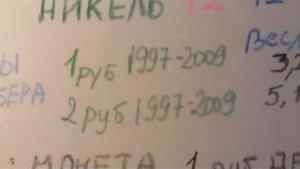 НИКЕЛЬ 12
Весл
Ы 1 руб 1997-2009 3,
БЕРА 2 руб 1997-2009 5,1
: МОНЕТА 1 руб